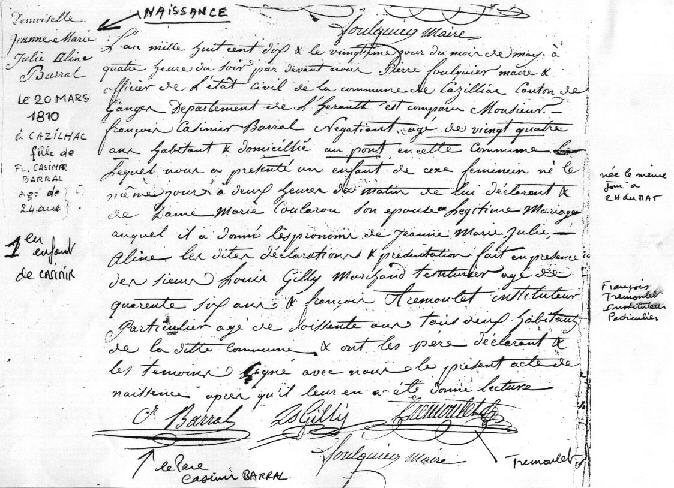 NAISSANCE
Foulquier Maire
Demoiselle
Jeanne Marie
Julie Aline
Barral
LE 20 MARS
1810
à CAZILHAC
fille de
FL. CASIMIR
BARRAL
agé de
24 ans
1 er
enfant
de CASIMIR
L'an mille huit cent dix & le vingtieme jour du mois de may à
quatre heures du soir par devant nous Pierre Foulquier maire &
officier de L'état Civil de la commune de Cazillac Canton de
Ganges Departement de L'herault est comparu Monsieur
françois Casimir Barral Negotiant agé de vingt quatre
ans habitant & domicillié au pont en cette Commune
Lequel nous a presenté un enfant de sexe feminin né le
même jour à deux heures du matin de lui déclarant &
de Dame Marie Coularou son epouse Legitime Mariage
auquel il à donné les prenoms de Jeanne Marie Julie
Aline les dites déclarations & présentation fait en presence
des sieurs Louis Gilly Marchand teinturier agé de
quarente six ans & françois Tremoulet instituteur
Particulier agé de soissente ans tous deux habitans
de la ditte commune & ont les pere déclarant &
les temoins signé avec nous le présent acte de
naissence apres qu'il leur en a été donné lecture
née le même
jour à
2H du MAT
François
Tremoulet
instituteur
Particulier
Cr Barral
Ls Gilly
Tremoulet
le Pere
Casimir BARRAL
Foulquier Maire
Tremoulet